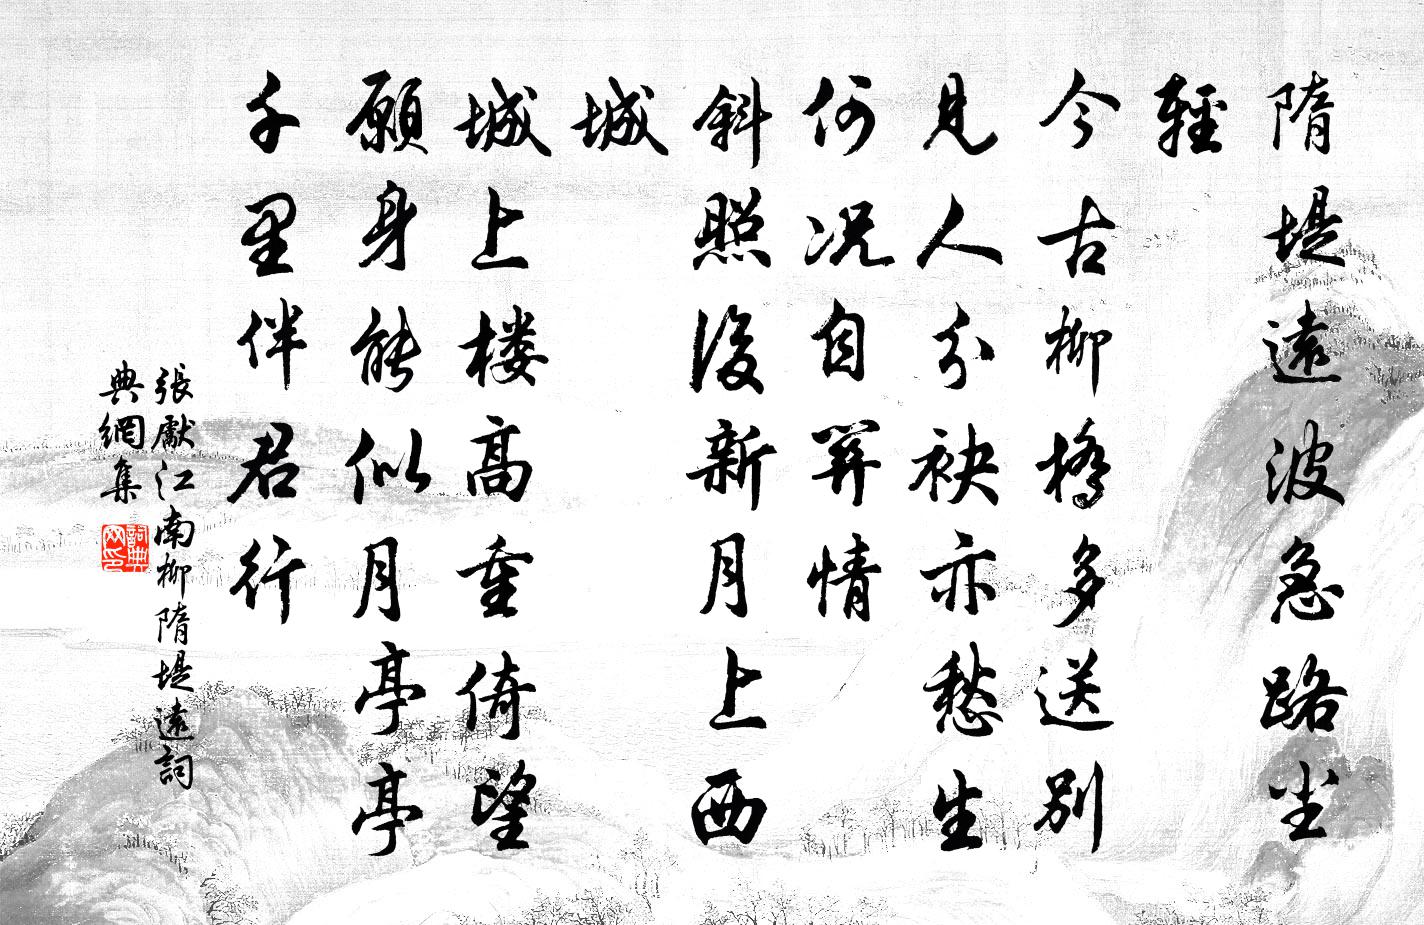 隋堤遠波急路尘
輕
今古柳橋多送别
見人分袂亦愁生
何况自關情
斜照後新月上西
城
城上楼高重倚望
願身能似月亭亭
千里伴君行
張獻江南柳隋堤遠詞
典網集
詞典網印